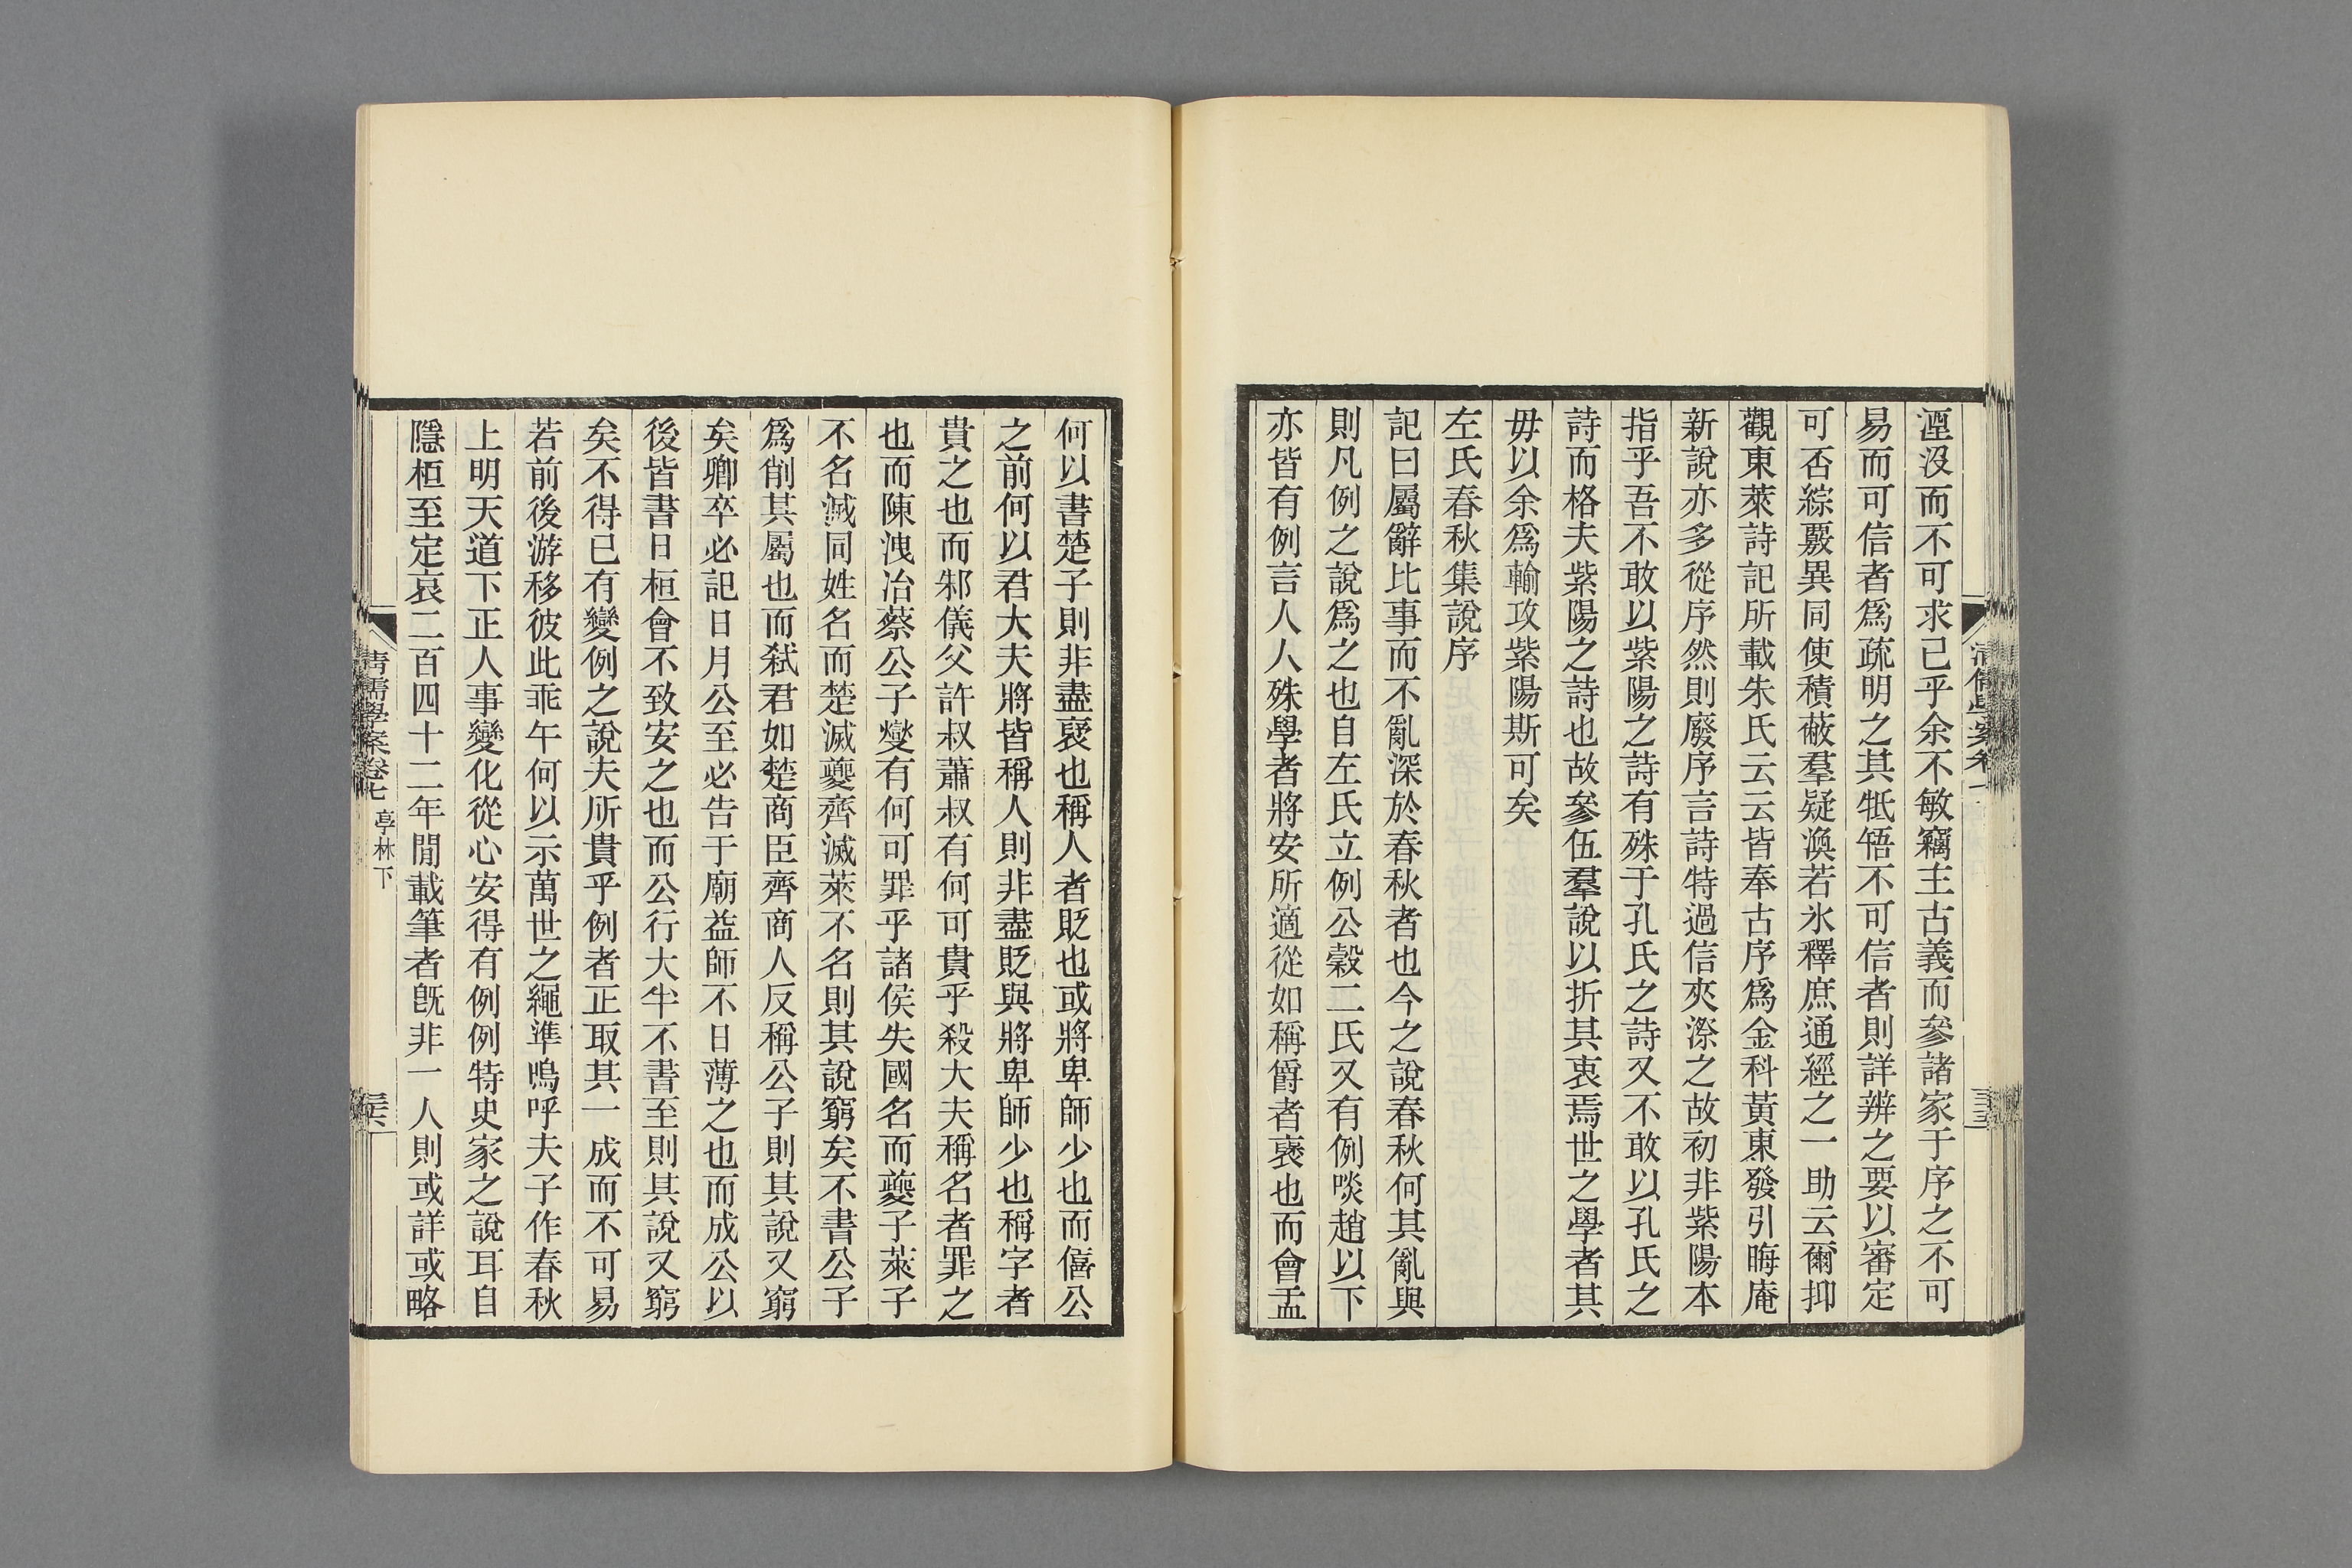 湮沒而不可求已乎余不敏竊主古義而參諸家于序之不可
易而可信者爲疏明之其牴牾不可信者則詳辨之要以審定
可否綜覈異同使積蔽羣疑渙若氷釋庶通經之一助云爾抑
觀東萊詩記所載朱氏云云皆奉古序爲金科黃東發引晦庵
新說亦多從序然則廢序言詩特過信夾漈之故初非紫陽本
指乎吾不敢以紫陽之詩有殊于孔氏之詩又不敢以孔氏之
詩而格夫紫陽之詩也故參伍羣說以折其衷焉世之學者其
毋以余爲輸攻紫陽斯可矣
左氏春秋集說序
記曰屬辭比事而不亂深於春秋者也今之說春秋何其亂與
則凡例之說爲之也自左氏立例公穀二氏又有例啖趙以下
亦皆有例言人人殊學者將安所適從如稱爵者襃也而會盂
何以書楚子則非盡襃也稱人者貶也或將卑師少也而僖公
之前何以君大夫將皆稱人則非盡貶與將卑師少也稱字者
貴之也而邾儀父許叔蕭叔有何可貴乎殺大夫稱名者罪之
也而陳洩冶蔡公子燮有何可罪乎諸侯失國名而夔子萊子
不名滅同姓名而楚滅夔齊滅萊不名則其說窮矣不書公子
爲削其屬也而弒君如楚商臣齊商人反稱公子則其說又窮
矣卿卒必記日月公至必告于廟益師不日薄之也而成公以
後皆書日桓會不致安之也而公行大半不書至則其說又窮
矣不得已有變例之說夫所貴乎例者正取其一成而不可易
若前後游移彼此乖午何以示萬世之繩準嗚呼夫子作春秋
上明天道下正人事變化從心安得有例例特史家之說耳自
隱桓至定哀二百四十二年閒載筆者旣非一人則或詳或略
清儒學案卷七 亭林下
三六